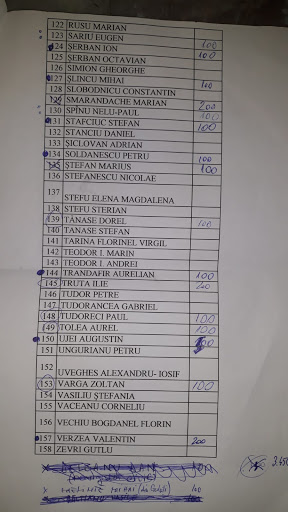 122 RUSU MARIAN
123 SARIU EUGEN
124 ȘERBAN ION 100
125 ȘERBAN OCTAVIAN 100
126 SIMION GHEORGHE
127 ȘLINCU MIHAI 100
128 SLOBODNICU CONSTANTIN
129 SMARANDACHE MARIAN 200
130 SPÎNU NELU-PAUL 100
131 STAFCIUC STEFAN 100
132 STANCIU DANIEL
133 ȘICLOVAN ADRIAN
134 SOLDANESCU PETRU 100
135 ȘTEFAN MARIUS 100
136 STEFANESCU NICOLAE
137 STEFU ELENA MAGDALENA
138 STEFU STERIAN
139 TĂNASE DOREL 100
140 TANASE STEFAN
141 TARINA FLORINEL VIRGIL
142 TEODOR I. MARIN
143 TEODOR I. ANDREI
144 TRANDAFIR AURELIAN 100
145 TRUTA ILIE
146 TUDOR PETRE
147 TUDORANCEA GABRIEL
148 TUDORECI PAUL 100
149 TOLEA AUREL 100
150 UJEI AUGUSTIN
151 UNGURIANU PETRU
152 UVEGHES ALEXANDRU- IOSIF
153 VARGA ZOLTAN 100
154 VASILIU ȘTEFANIA
155 VACEANU CORNELIU
156 VECHIU BOGDANEL FLORIN
157 VERZEA VALENTIN 200
158 ZEVRI GUTLU